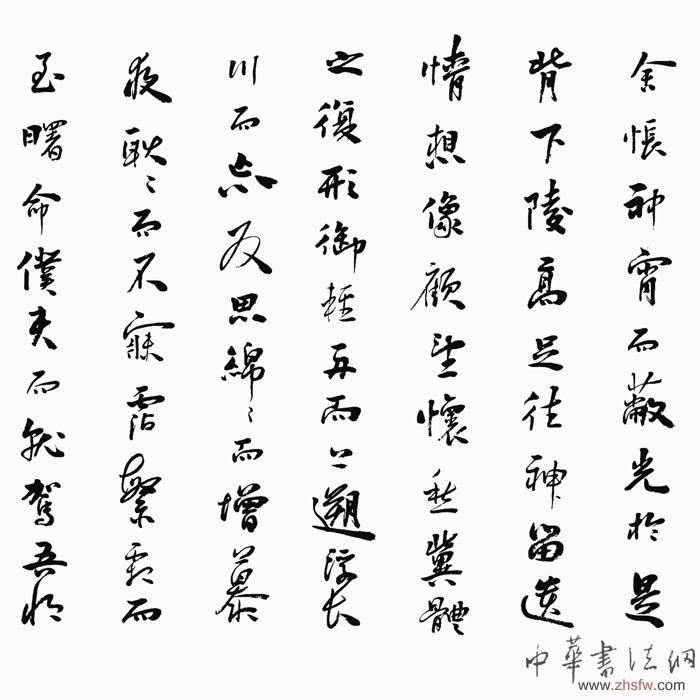 舍悵神宵而蔽光於是
背下陵高足往神留遺
情想像顧望懷愁冀體
之復形御輕舟而上遡浮長
川而忘反思綿〻而增慕
夜耿〻而不寐霑繁霜而
至曙命僕夫而就駕吾將
中華書法網
www.zhsfw.com